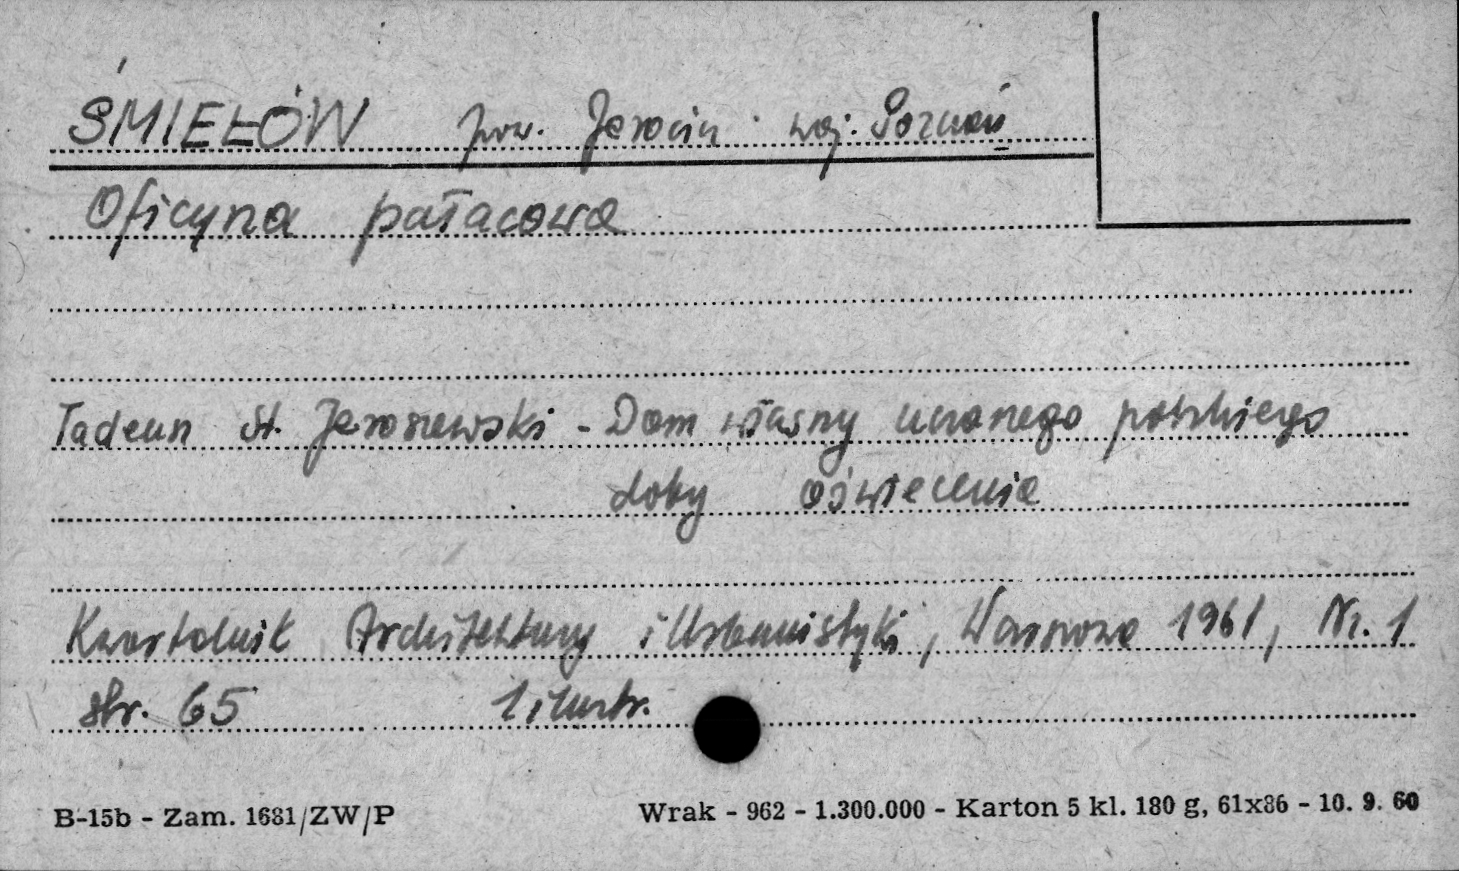 ŚMIEŁÓW pow. Jarocin woj. Poznań
Oficyna pałacowa
Tadeusz St. Jaroszewski - Dom własny uczonego polskiego
doby oświecenia
Kwartalnik Architektury i Urbanistyki, Warszawa 1961, Nr. 1
str. 65 1 ilustr.
B-15b - Zam. 1681/ZW/P Wrak - 962 - 1.300.000 - Karton 5 kl. 180 g, 61x86 - 10. 9. 60